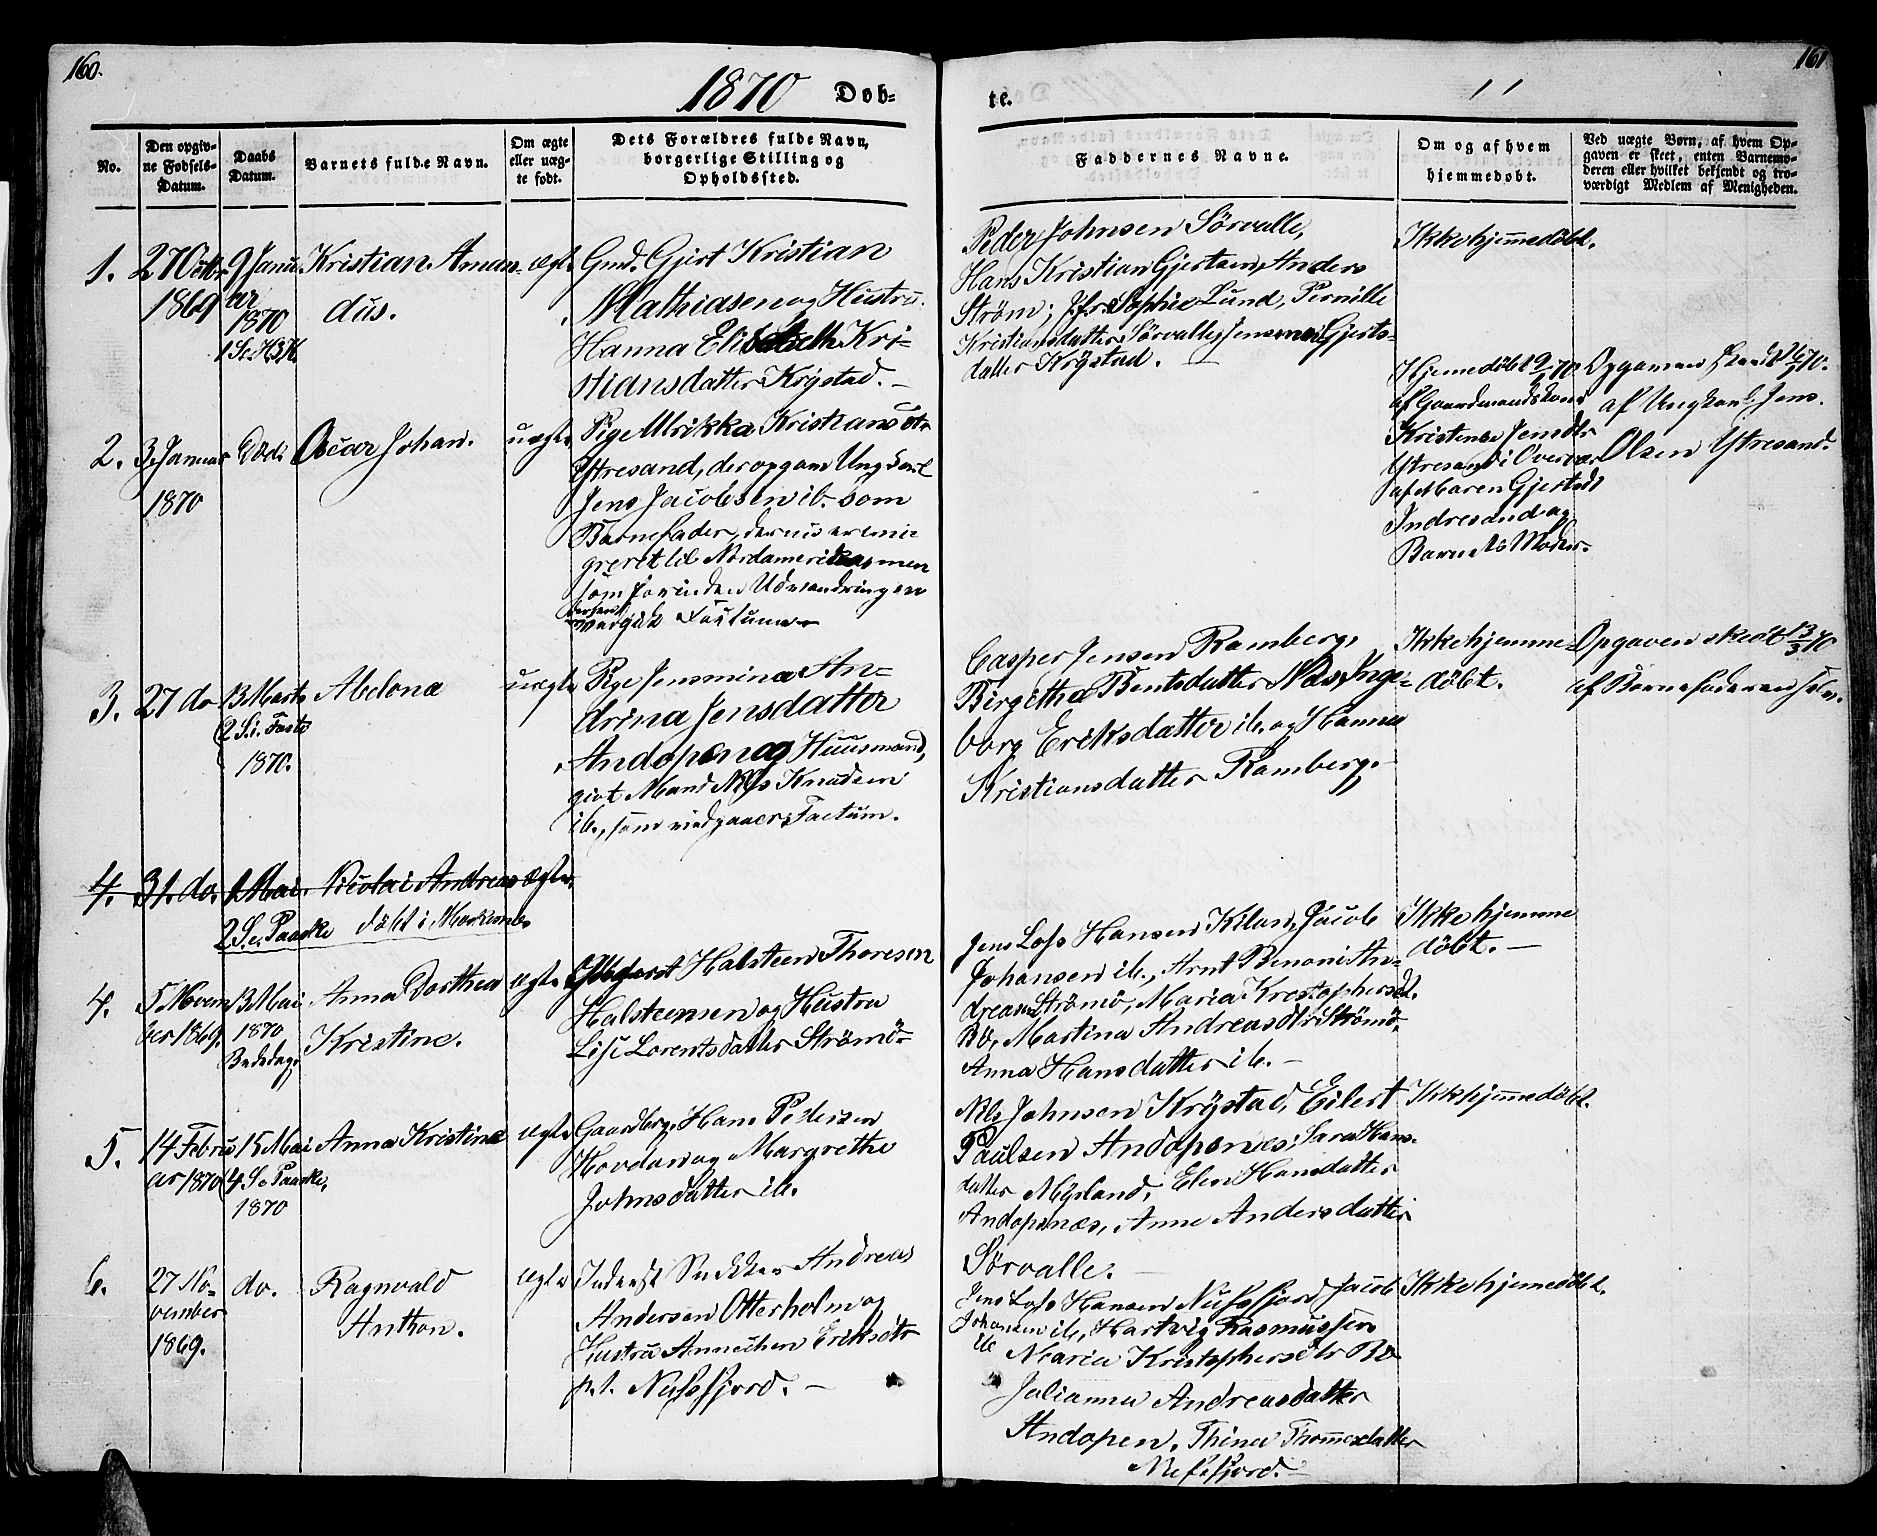 160.
161
1870 Døb-
te.
No.
Den opgiv-
ne Fødsels-
Datum.
Daabs
Datum.
Barnets fulde Navn.
Om ægte
eller uæg-
te født.
Dets Forældres fulde Navn,
borgerlige Stilling og
Opholdssted.
Faddernes Navne.
Om og af hvem
hjemmedøbt.
Ved uægte Børn, af hvem Op-
gaven er skeet, enten Barnemo-
deren eller hvilket bekjendt og tro-
værdigt Medlem af Menigheden.
1.
27 Octbr
1869
9 Janu
ar
1870
1 S. e. H3K
Kristian Aman-
dus.
ægte
Gmd. Gjert Kristian
Mathiasen og Hustru
Hanna Elisabeth Kri-
stiansdatter Krystad. -
Peder Johnsen Sörvalle,
Hans Kristian Gjertsen, Anders
Strøm; Jfr. Sophie Lund, Pernille
Kristiansdatter Sörvalle, Gjerts-
datter Krystad. -
Ikke hjemmedöbt.
2.
3 Januar
1870
Död
Oscar Johan.
uægte
Pige Ulrikka Kristiansdtr
Ytresand, der opgav Ungkarl
Jens Jacobsen ib. som
Barnefader, der nu er emi-
greret til Nordamerika, men
som forinden Udvandringen
vedgik Factum
Hjemmedöbt 9/1 70
af Gaardmandskone
Kristense Jensdtr
Ytresand i Overvær
af Maren Gjertsdtr
Indresand og
Barnets Moder.
Opgaven skeedt 16/1 70.
af Ungkarl Jens
Olsen Ytresand.
3.
27 do
13 Marts
2 S. i. Faste
1870.
Abelona
uægte
Pige Jensmina An-
drina Jensdatter
Andopen og Huusmand,
givt Mand Nils Knudsen
ib., som vedgaaer Factum.
Casper Jensen Ramberg,
Birgitha Bentsdatter Næs, Inge-
borg Eriksdatter ib. og Hanna
Kristiansdatter Ramberg.
Ikke hjemme-
döbt.
Opgaven skedt 13/3 70
af Barnefaderen selv.
4. 31. do. 1 Mai. Nicolai Andreas ægte
2 S. e. Paaske döbt i Moskenes
4.
5 Novem
ber 1869.
13 Mai
1870
Bededag.
Anna Dorthea
Kristine.
ægte
Halsteen Thoresen
Halsteensen og Hustru
Lise Lorentsdatter Strömö
Jens Loss Hansen Kilan, Jacob
Johansen ib., Arnt Benoni An-
dreasen Strömö, Maria Kristophersdt.
Bö, Martina Andreasdtr Strömö,
Anna Hansdatter ib. -
Ikke hjemme
döbt. -
5.
14 Febru
ar 1870
15 Mai
4 S. e. Paaske,
1870
Anna Kristina
ægte
Gaardbrg. Hans Pedersen
Hovden og Margrethe
Johnsdatter ib.
Nils Johnsen Krystad, Eilert
Paulsen Andopsnes; Sara Hans-
datter Myrland, Elen Hansdatter
Andopsnæs, Anne Andersdatter
Sörvalle. -
Ikke hjemmedöbt.
6.
27 No-
vember
1869.
do.
Ragnvald
Anthon.
ægte
Inderst Snekker Andreas
Andersen Otterholm og
Hustru Annichen Eriksdtr
p. t. Nufsfjord. -
Jens Loss Hansen Nufsfjord, Jacob
Johansen ib., Hartvig Rasmussen
ib.
Maria Kristophersdtr Bö
Julianna Andreasdatter
Andopen. Thina Thomesdatter
Nufsfjord. -
Ikke hjemmedöbt.